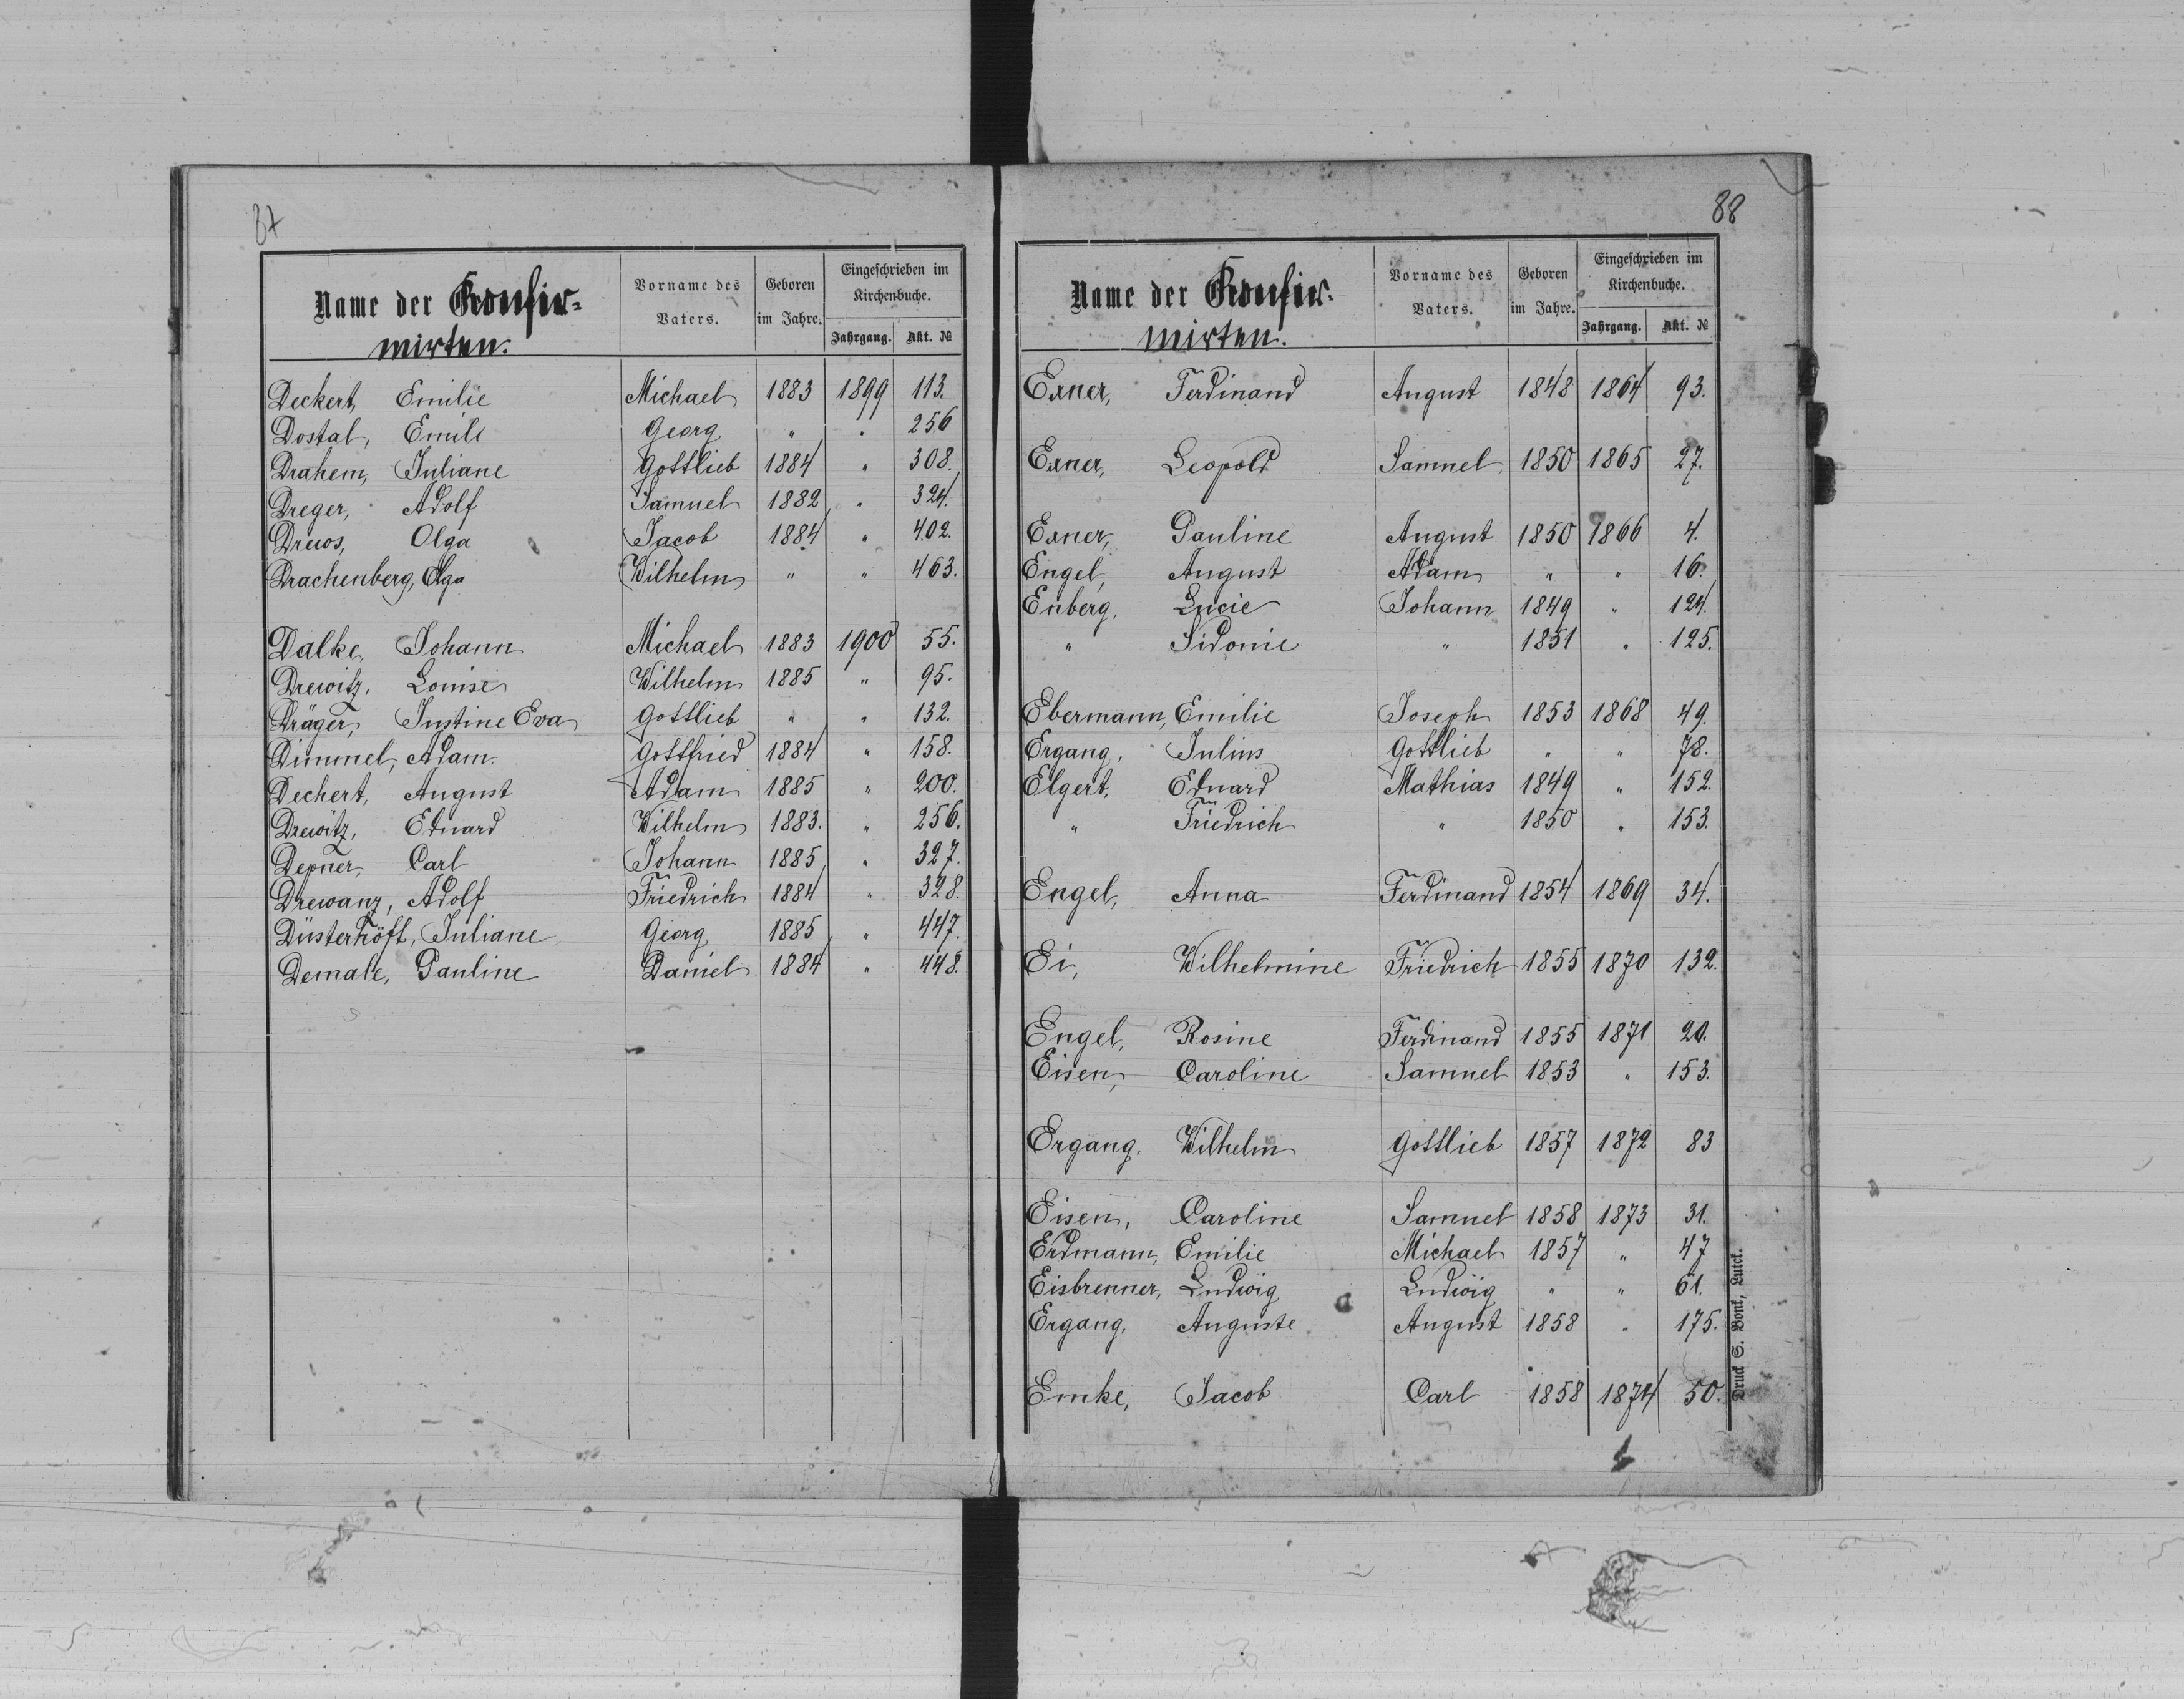 87
Name der Konfir-
mirten.
Vorname des Vaters.
Geboren im Jahre.
Eingeschrieben im Kirchenbuche.
Jahrgang. Akt. №
Deckert, Emilie Michael 1883 1899 113.
Dostal, Emil Georg " " 256
Drahem, Juliane Gottlieb 1884 " 308.
Dreger, Adolf Samuel 1882 " 324.
Drews, Olga Jacob 1884 " 402.
Drachenberg, Olga Wilhelm " " 463.
Dalke, Johann Michael 1883 1900 55.
Drewitz, Louise Wilhelm 1885 " 95.
Dräger, Justine Eva Gottlieb " " 132.
Dimmel, Adam. Gottfried 1884 " 158.
Dechert, August Adam 1885 " 200.
Drewitz, Eduard Wilhelm 1883. " 256.
Depner, Carl Johann 1885 " 327.
Drewanz, Adolf Friedrich 1884 " 328.
Düsterhöft, Juliane Georg 1885 " 447.
Demale, Pauline Daniel 1884 " 448.
88
Name der Konfir-
mirten.
Vorname des Vaters.
Geboren im Jahre.
Eingeschrieben im Kirchenbuche.
Jahrgang. Akt. №
Exner, Ferdinand August 1848 1864 93.
Exner, Leopold Samuel 1850 1865 27.
Exner, Pauline August 1850 1866 4.
Engel, August Adam " " 16.
Enberg, Lucie Johann 1849 " 124.
" Sidonie " 1851 " 125.
Ebermann, Emilie Joseph 1853 1868 49.
Ergang, Julius Gottlieb " " 78.
Elgert, Eduard Mathias 1849 " 152.
" Friedrich " 1850 " 153.
Engel, Anna Ferdinand 1854 1869 34.
Ei, Wilhelmine Friedrich 1855 1870 132.
Engel, Rosine Ferdinand 1855 1871 20.
Eisen, Caroline Samuel 1853 " 153.
Ergang, Wilhelm Gottlieb 1857 1872 83
Eisen, Caroline Samuel 1858 1873 31.
Erdmann, Emilie Michael 1857 " 47
Eisbrenner, Ludwig Ludwig " " 61.
Ergang, Auguste August 1858 " 175.
Emke, Jacob Carl 1858 1874 50.
Druck S. Bonk, Lutck.